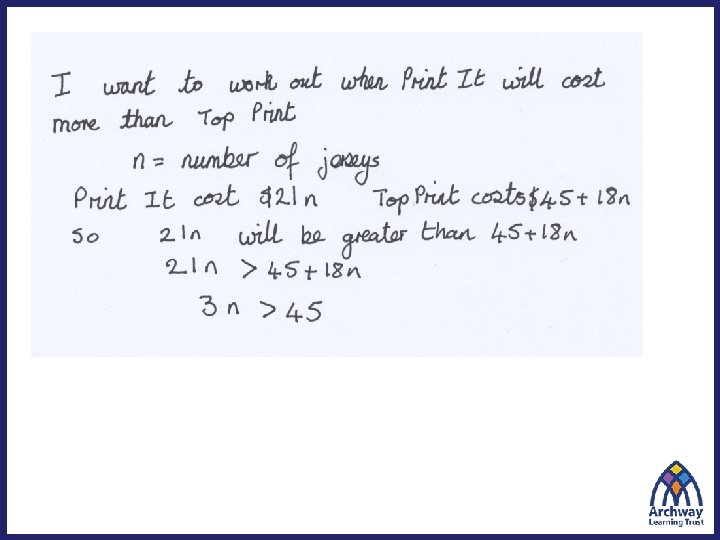 I want to work out when Print It will cost
more than Top Print
n = number of jerseys
Print It cost $21n Top Print costs $45 + 18n
so 21n will be greater than 45+18n
21n > 45+18n
3n > 45
Archway
Learning Trust